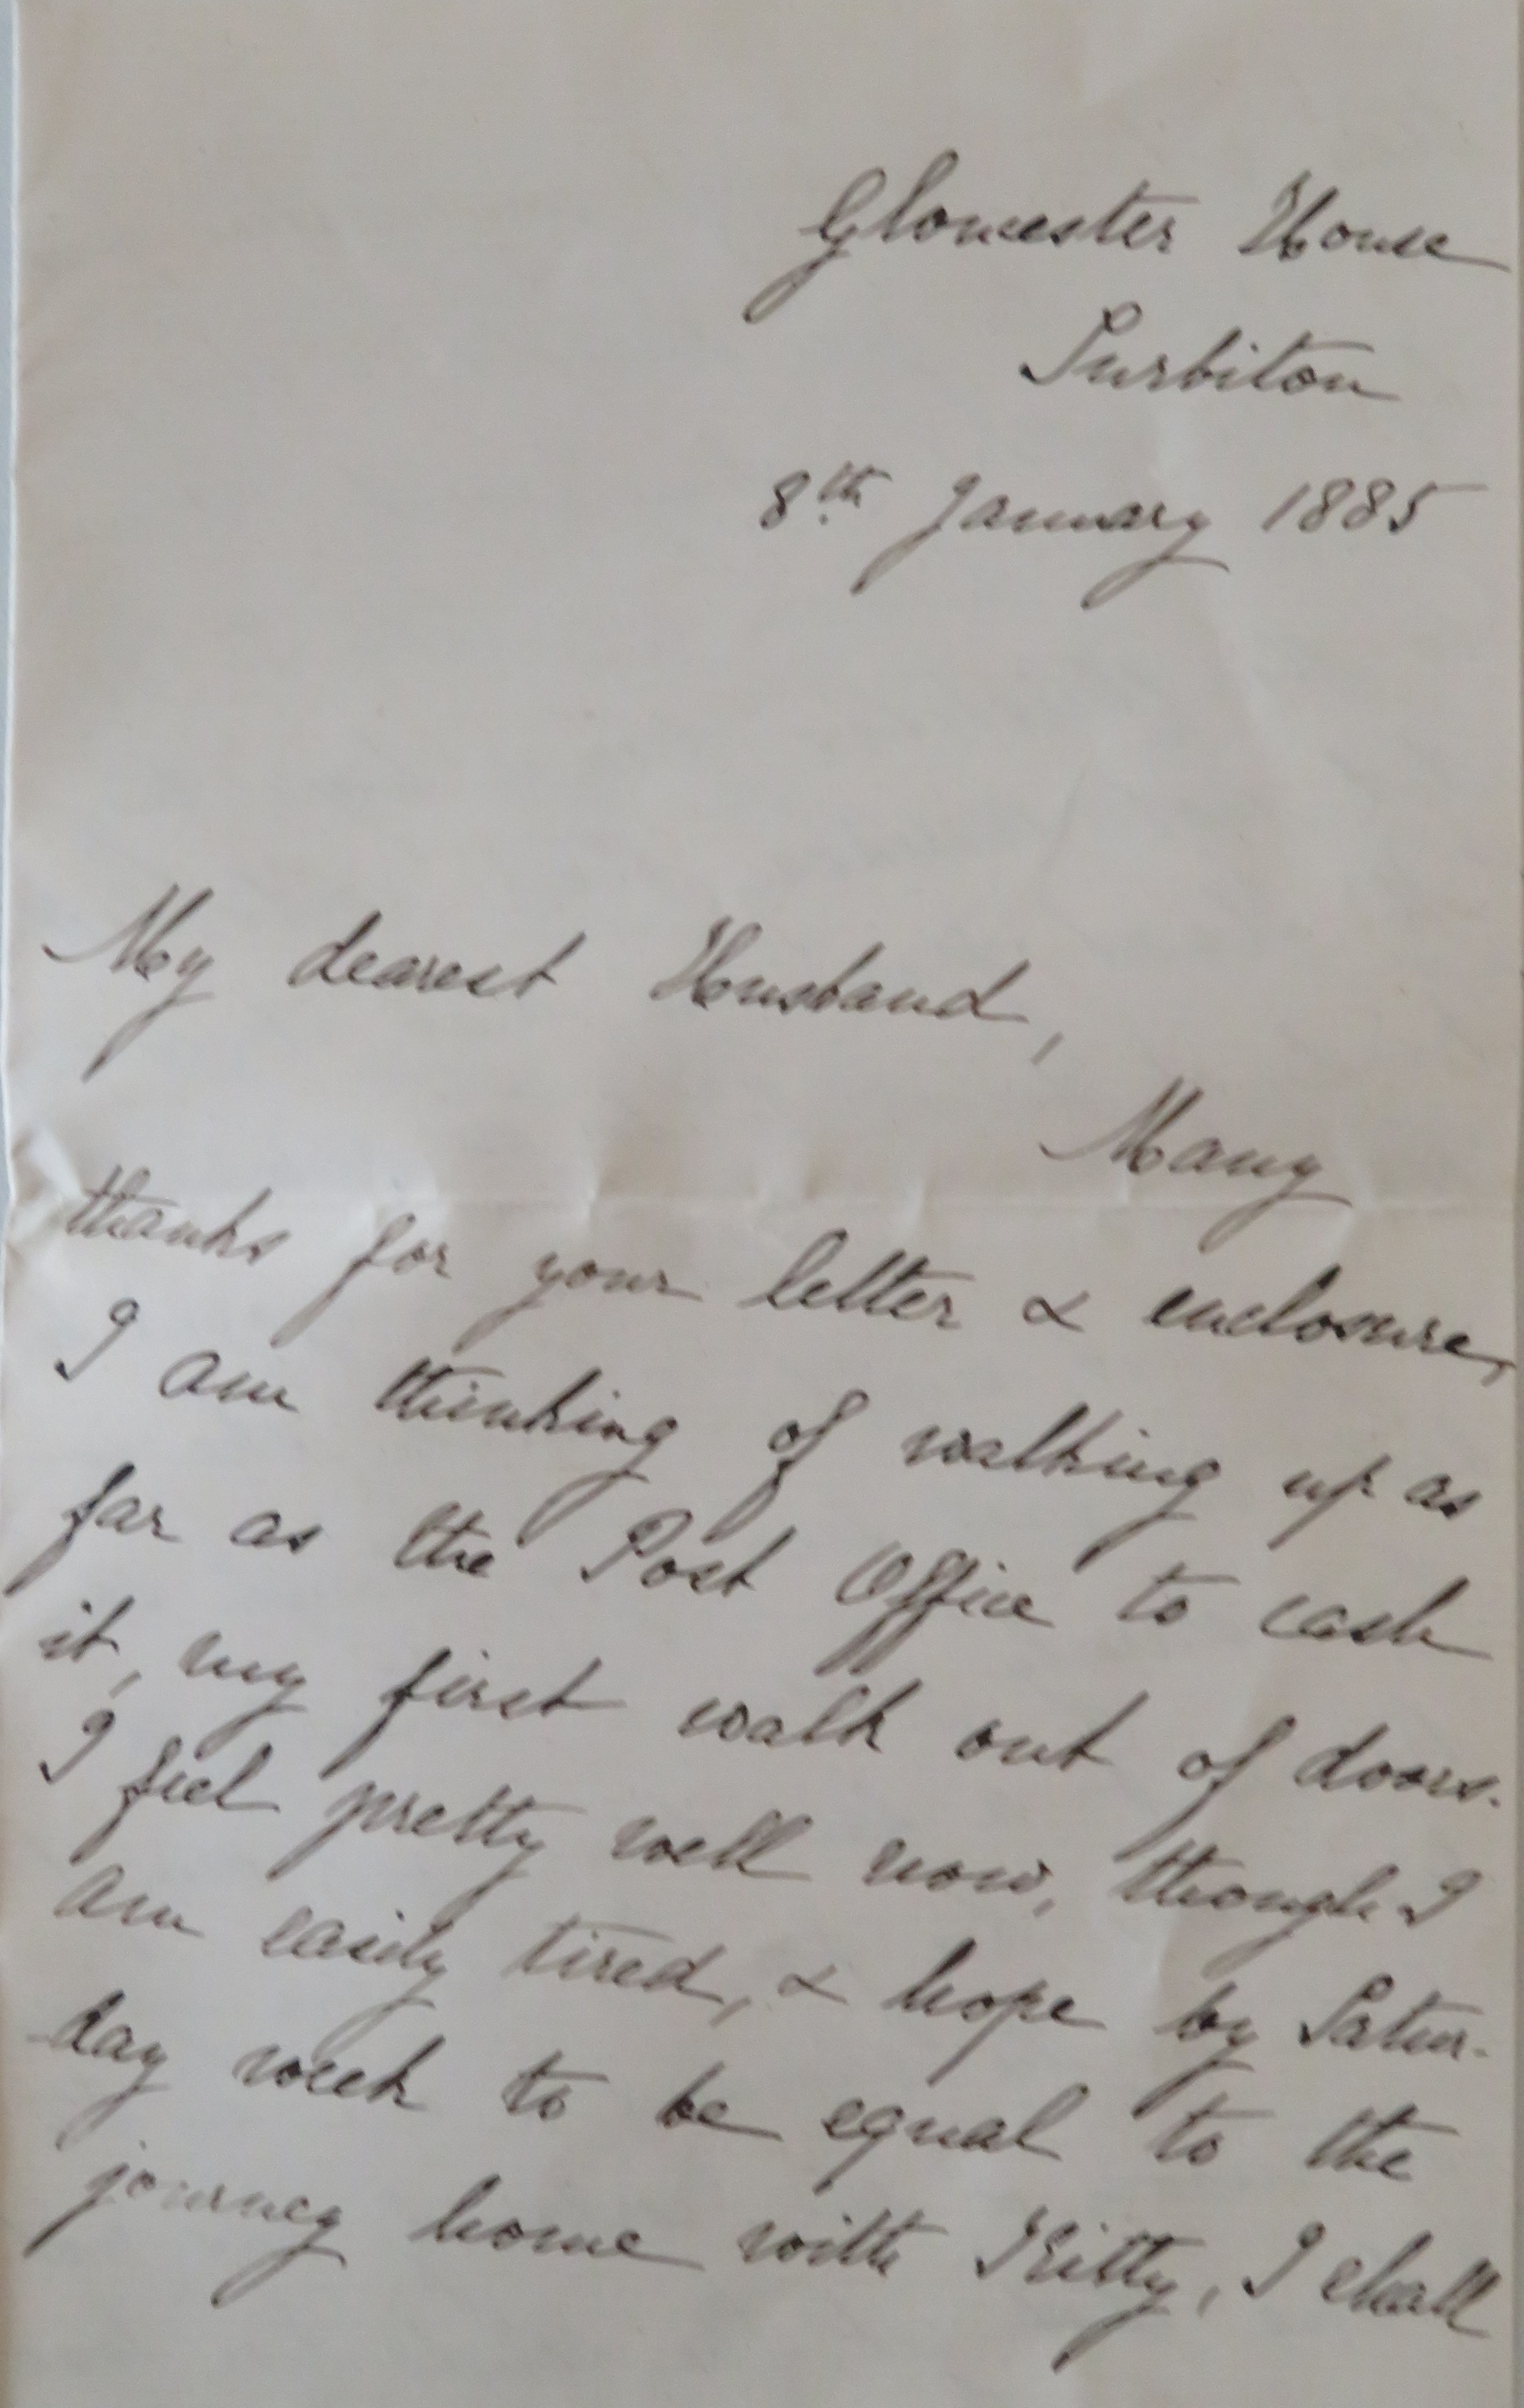 Gloucester House
Surbiton
8th January 1885
My dearest Husband,
Many
thanks for your letter & enclosure,
I am thinking of walking up as
far as the Post Office to cash
it, my first walk out of doors.
I feel pretty well now, though I
am easily tired, & hope by Satur-
day week to be equal to the
journey home with Kitty, I shall